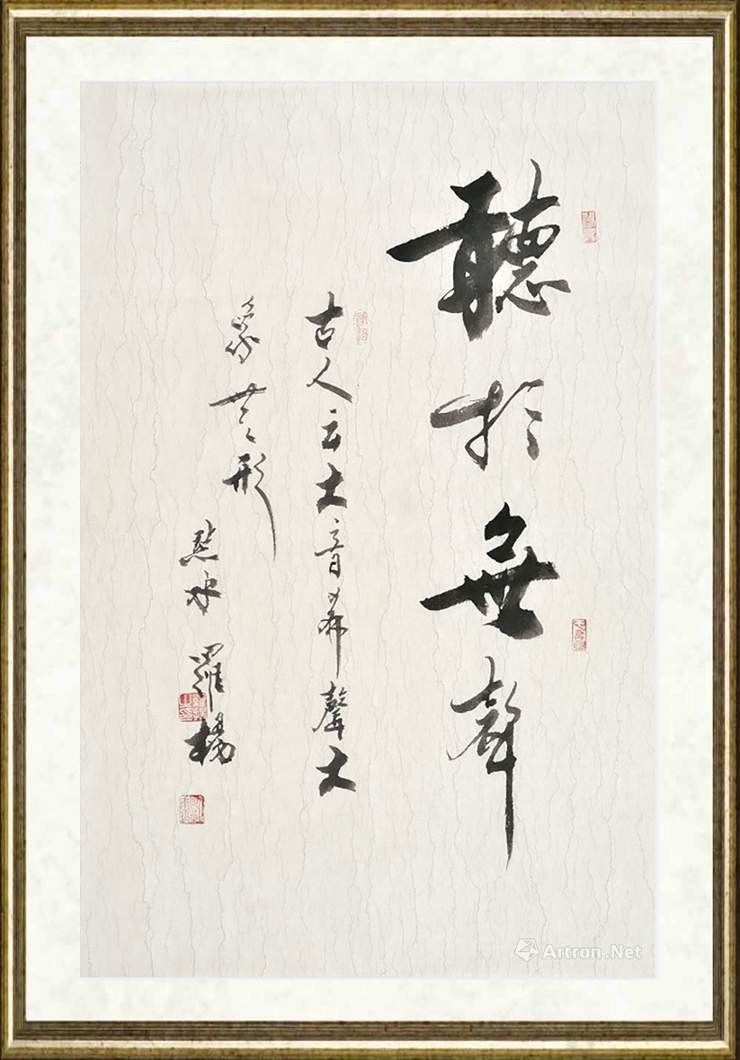 聽於無聲
古人云大音希聲大
象無形
點水 羅楊
Artron.Net